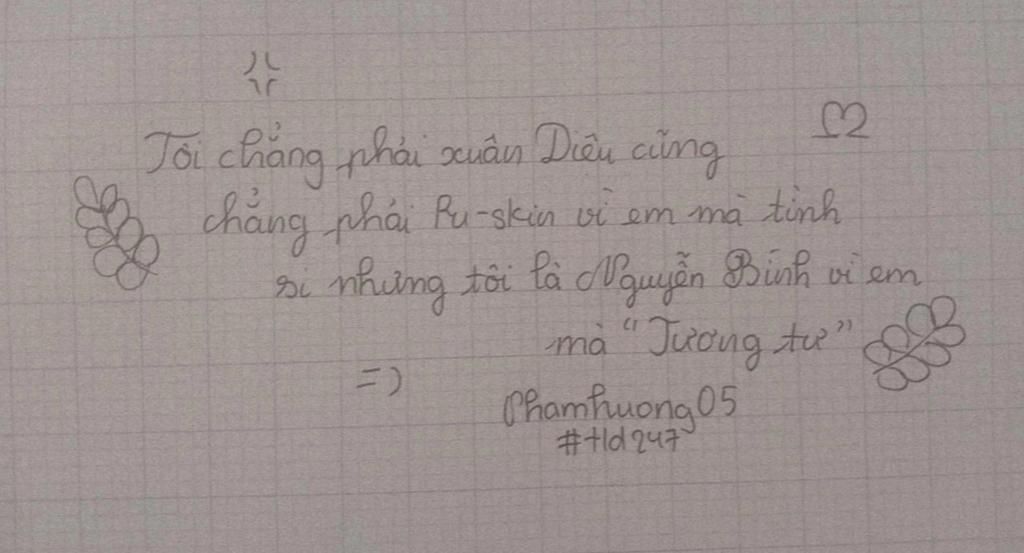 Tôi chẳng phải xuân Diệu cũng
chẳng phải Pu-skin vì em mà tình
si nhưng tôi là Nguyễn Bính vì em
mà "Tương tư"
=)
Phamhuong05
#tld247